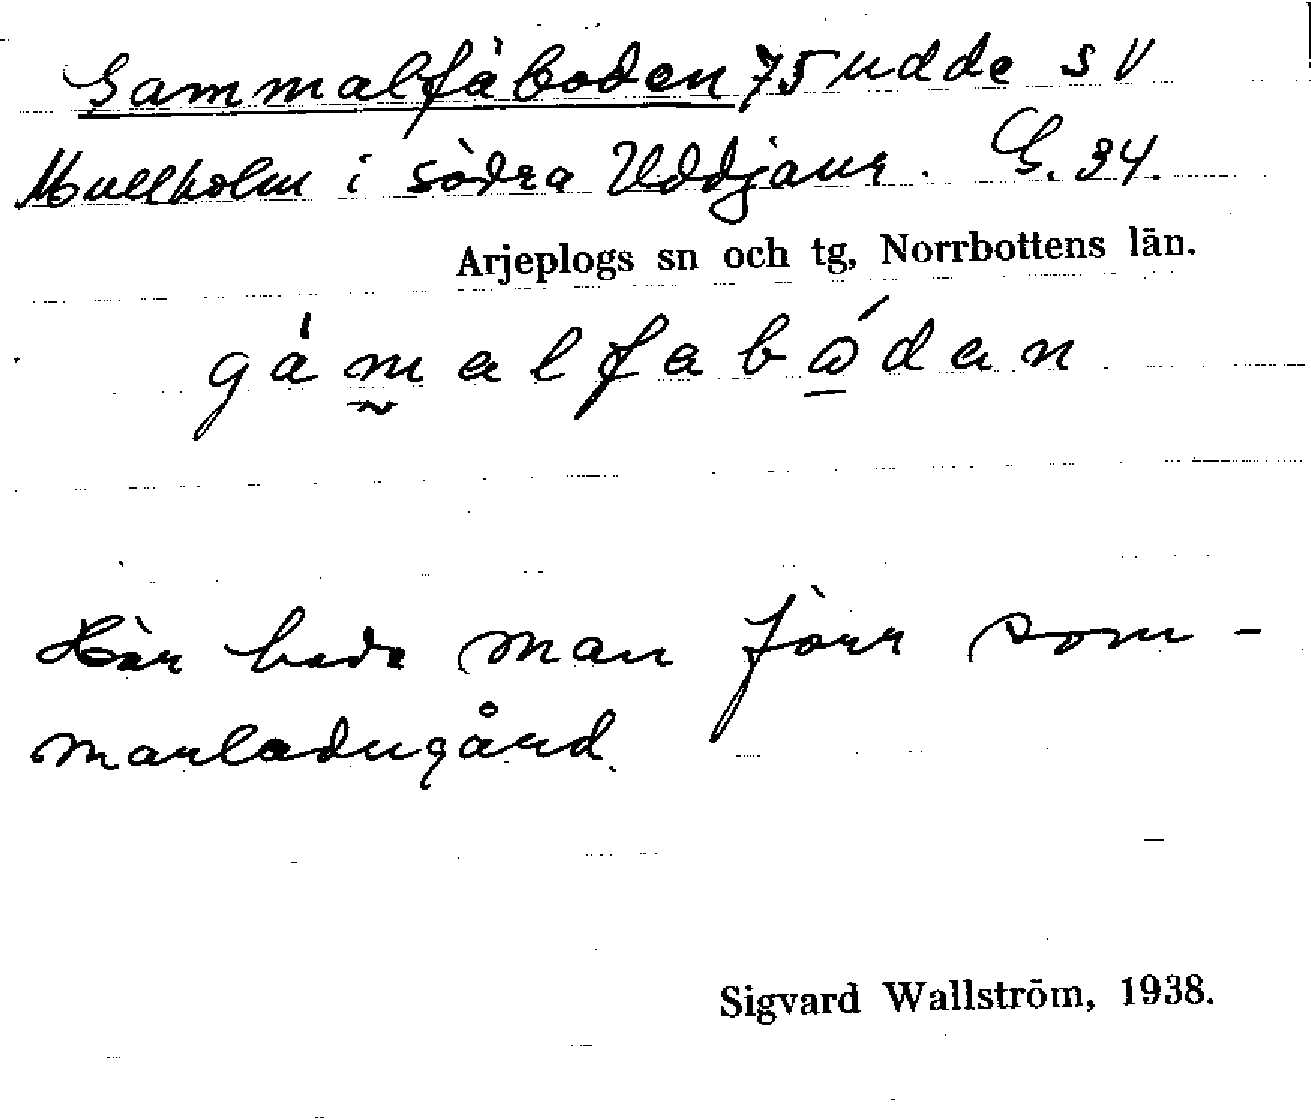 Gammalfäboden 75 udde SV
Mullholm i södra Uddjaur. G. 34.
Arjeplogs sn och tg, Norrbottens län.
gámalfabódan
Här hade man förr som-
marladugård
Sigvard Wallström, 1938.